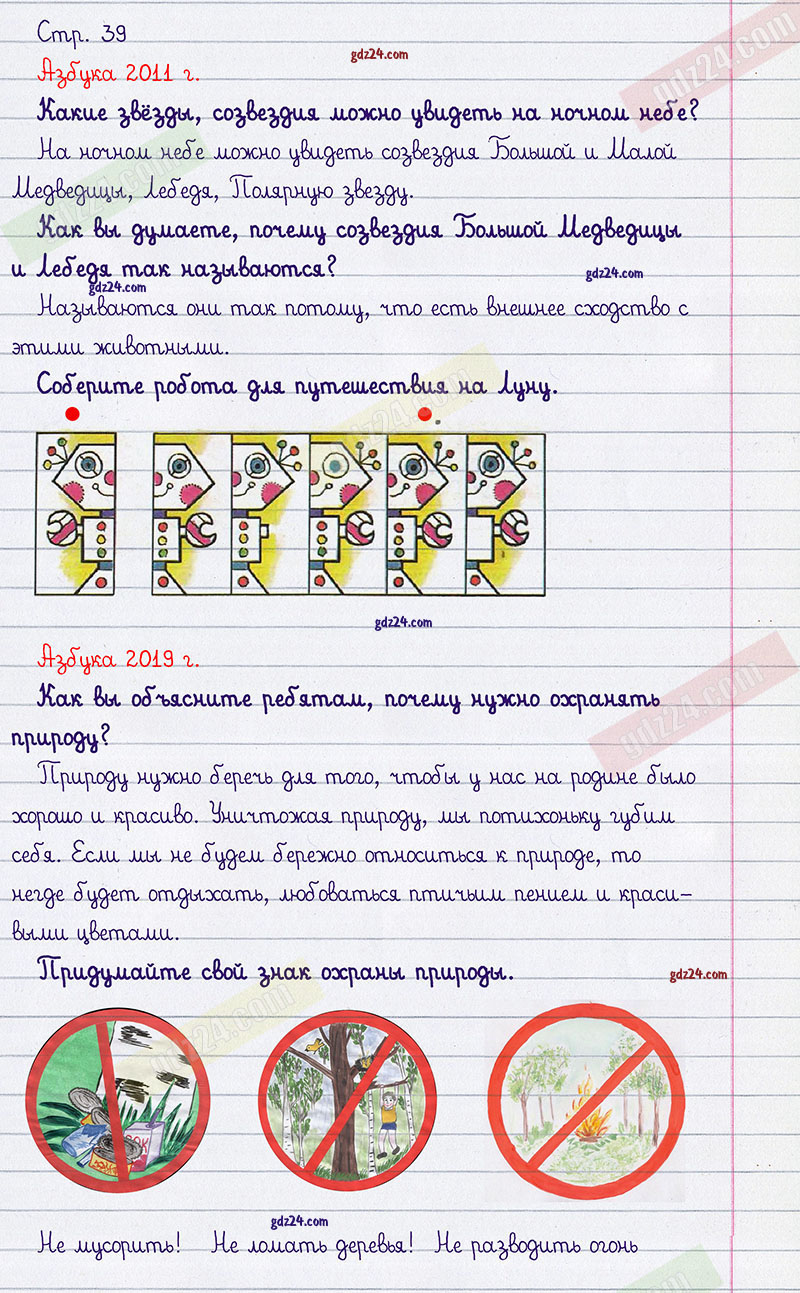 Стр. 39
gdz24.com
gdz24.com
Азбука 2011 г.
Какие звёзды, созвездия можно увидеть на ночном небе?
На ночном небе можно увидеть созвездия Большой и Малой
Медведицы, Лебедя, Полярную звезду.
gdz24.com
Как вы думаете, почему созвездия Большой Медведицы
и Лебедя так называются?
gdz24.com
gdz24.com
Называются они так потому, что есть внешнее сходство с
этими животными.
Соберите робота для путешествия на Луну.
gdz24.com
gdz24.com
Азбука 2019 г.
Как вы объясните ребятам, почему нужно охранять
природу?
gdz24.com
Природу нужно беречь для того, чтобы у нас на родине было
хорошо и красиво. Уничтожая природу, мы потихоньку губим
себя. Если мы не будем бережно относиться к природе, то
негде будет отдыхать, любоваться птичьим пением и краси-
выми цветами.
Придумайте свой знак охраны природы.
gdz24.com
gdz24.com
СОК
gdz24.com
Не мусорить! Не ломать деревья! Не разводить огонь